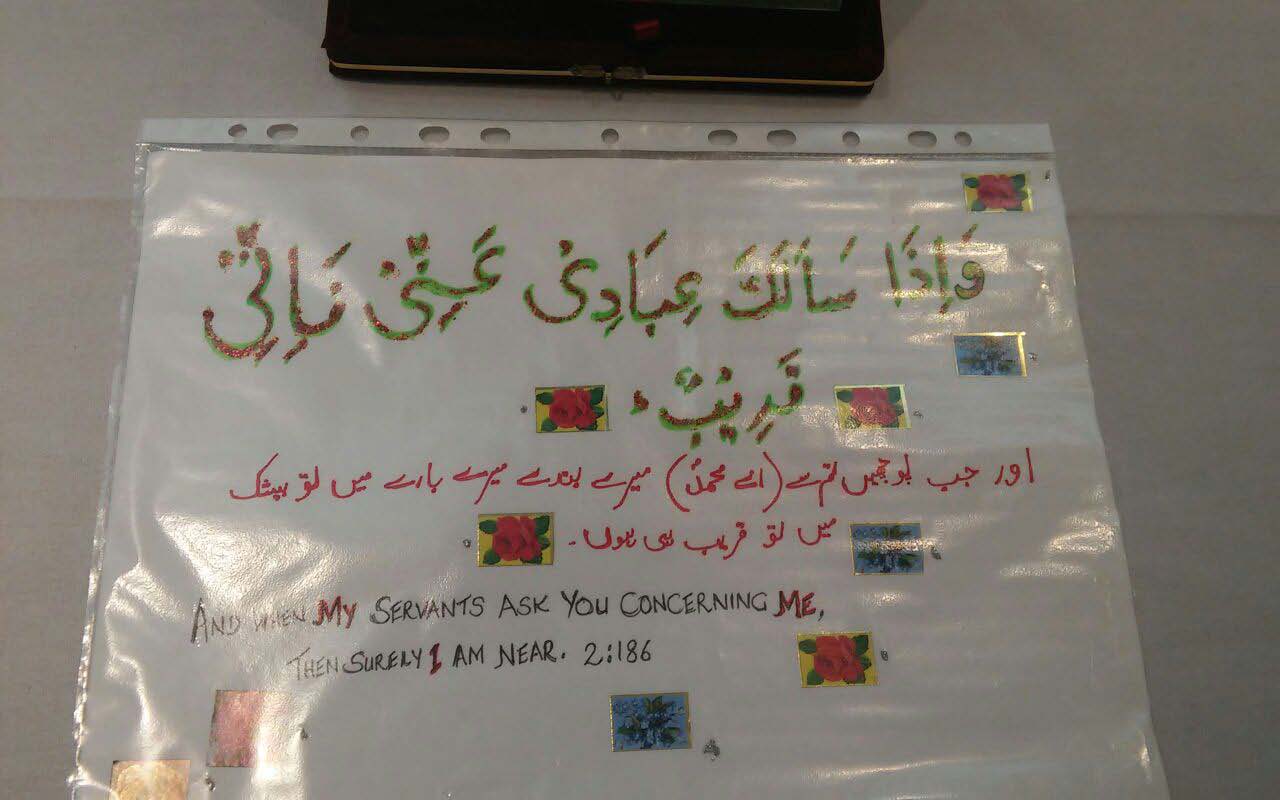 وَاِذَا سَاَلَكَ عِبَادِىْ عَنِّىْ فَاِنِّىْ
قَرِيْبٌ ·
اور جب پوچھیں تم سے (اے محمدؐ) میرے بندے میرے بارے میں تو بیشک
میں تو قریب ہی ہوں۔
AND WHEN MY SERVANTS ASK YOU CONCERNING ME,
THEN SURELY I AM NEAR. 2:186